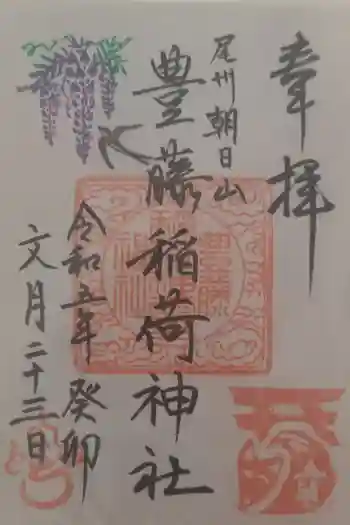 奉拝
尾州朝日山
豊藤稲荷神社
令和五年 癸卯
文月二十三日